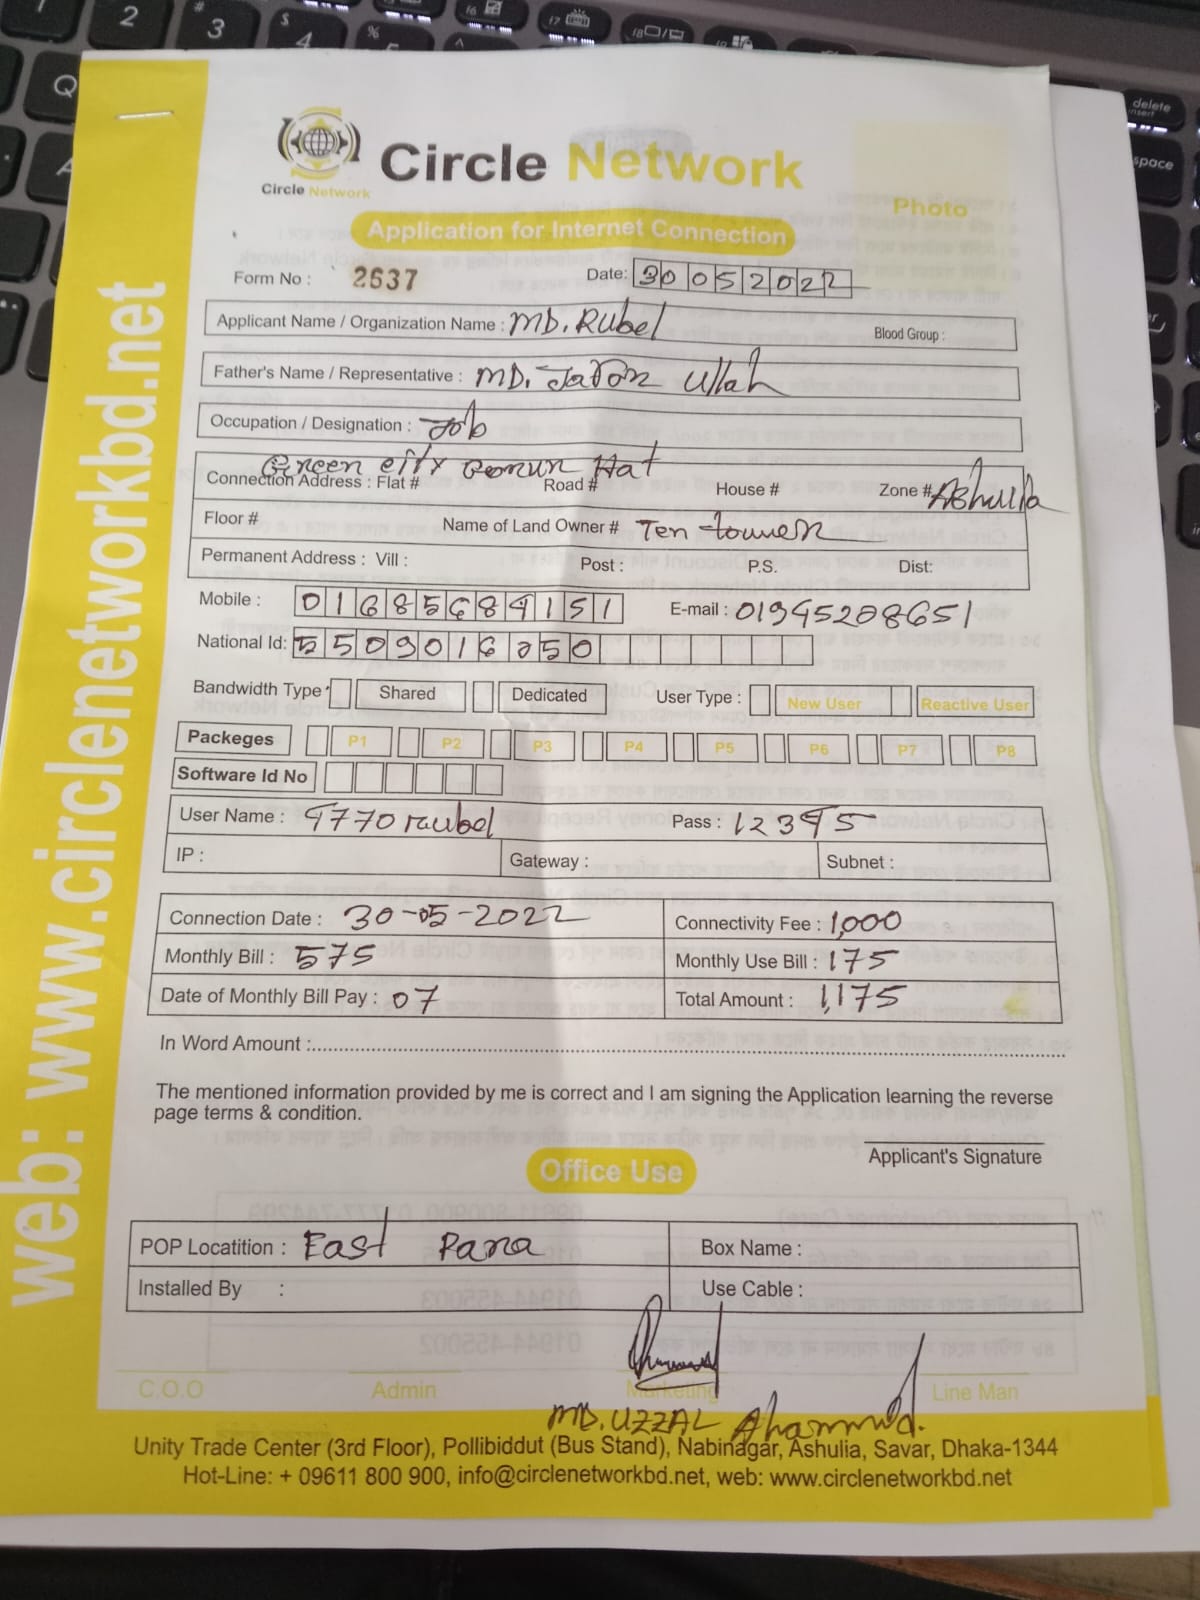 Circle Network
Circle Network
Photo
Application for Internet Connection
Form No : 2637
Date: 30052022
Applicant Name / Organization Name : MD. Rubel
Blood Group :
Father's Name / Representative : MD. Jaron Ullah
Occupation / Designation : Job
Green city Hat
Connection Address : Flat # Road # House # Zone # Ashulia
Floor # Name of Land Owner # Ten tower
Permanent Address : Vill : Post : P.S. Dist:
Mobile : 01685684151 E-mail : 01945208651
National Id: 
Bandwidth Type Shared Dedicated User Type : New User Reactive User
Packeges P1 P2 P3 P4 P5 P6 P7 P8
Software Id No
User Name : 4770rubel Pass : 12345
IP : Gateway : Subnet :
Connection Date : 30-05-2022 Connectivity Fee : 1,000
Monthly Bill : 575 Monthly Use Bill : 175
Date of Monthly Bill Pay : 07 Total Amount : 1,175
In Word Amount :
The mentioned information provided by me is correct and I am signing the Application learning the reverse
page terms & condition.
Applicant's Signature
Office Use
POP Locatition : East Para Box Name :
Installed By : Use Cable :
C.O.O Admin Marketing Line Man
MD. UZZAL Ahammed.
Unity Trade Center (3rd Floor), Pollibiddut (Bus Stand), Nabinagar, Ashulia, Savar, Dhaka-1344
Hot-Line: + 09611 800 900, info@circlenetworkbd.net, web: www.circlenetworkbd.net
web: www.circlenetworkbd.net